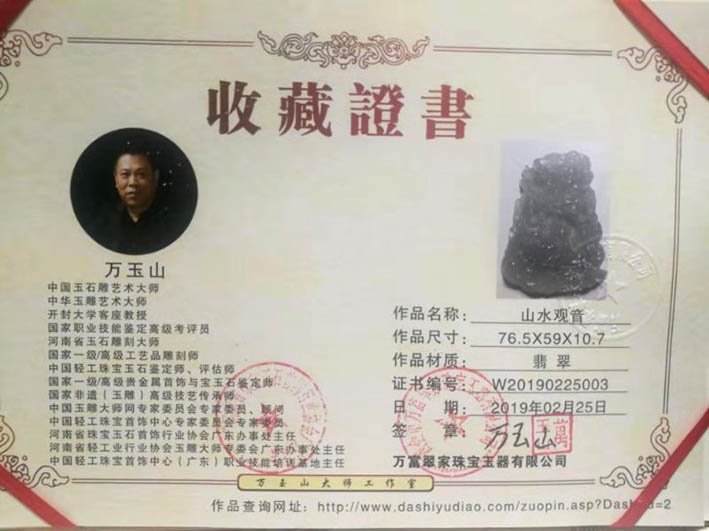 收藏證書
万玉山
中国玉石雕艺术大师
中华玉雕艺术大师
开封大学客座教授
国家职业技能鉴定高级考评员
河南省玉石雕刻大师
国家一级/高级工艺品雕刻师
中国轻工珠宝玉石鉴定师、评估师
国家一级/高级贵金属首饰与宝玉石鉴定师
国家非遗（玉雕）高级技艺传承师
中国玉雕大师网专家委员会专家委员、顾问
中国轻工珠宝首饰中心专家委员会专家委员
河南省珠宝玉石首饰行业协会广东办事处主任
河南省轻工业行业协会玉雕大师专委会广东办事处主任
中国轻工珠宝首饰中心（广东）职业技能培训基地主任
作品名称: 山水观音
作品尺寸: 76.5X59X10.7
作品材质: 翡翠
证书编号: W20190225003
日 期: 2019年02月25日
签 章: 万玉山
万富翠家珠宝玉器有限公司
万玉山大师工作室
作品查询网址: http://www.dashiyudiao.com/zuopin.asp?Dashiid=2